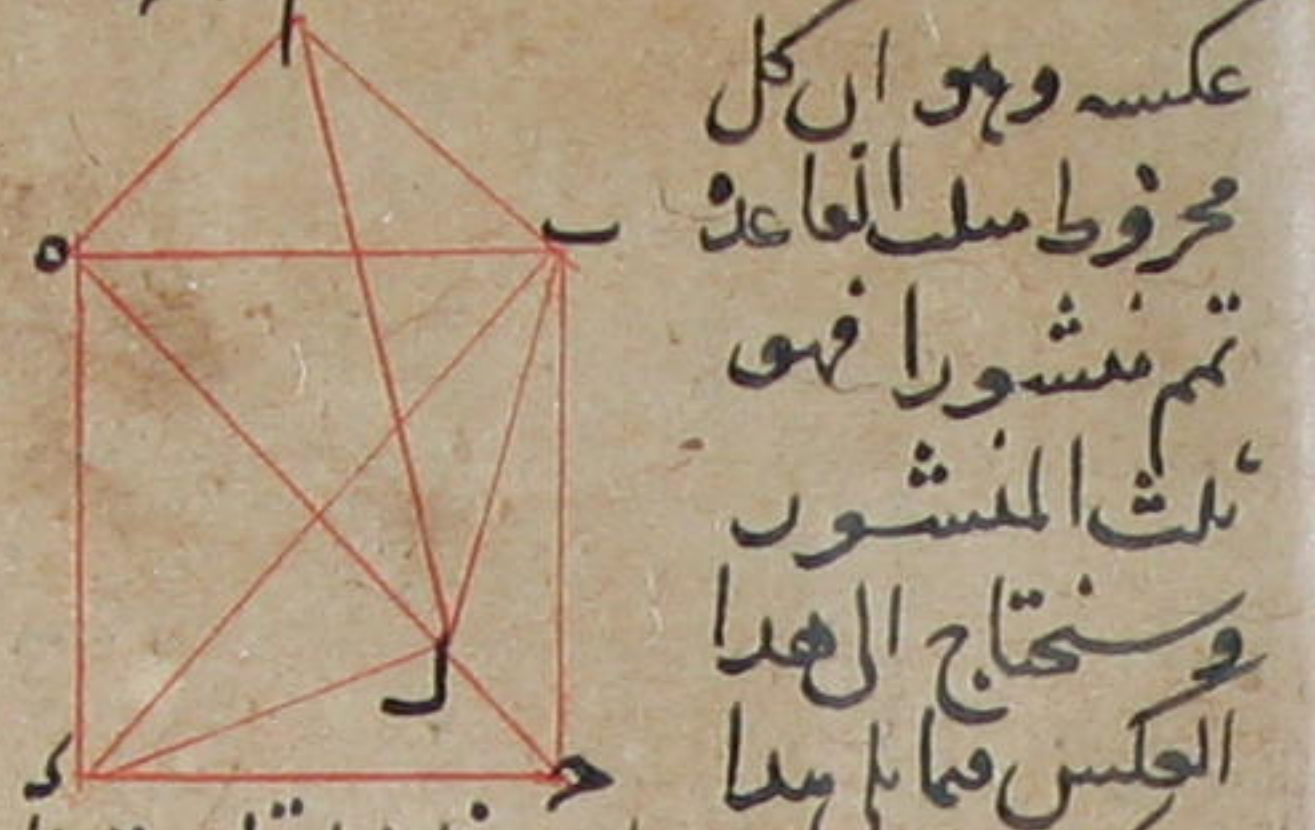 عكسه وهو ان كل
مخروط مثلث القاعدة
تمم منشورا فهو
ثلث المنشور
وسنحتاج الى هذا
العكس فيما يلى هذا
ا
ه
ب
ل
د
ح